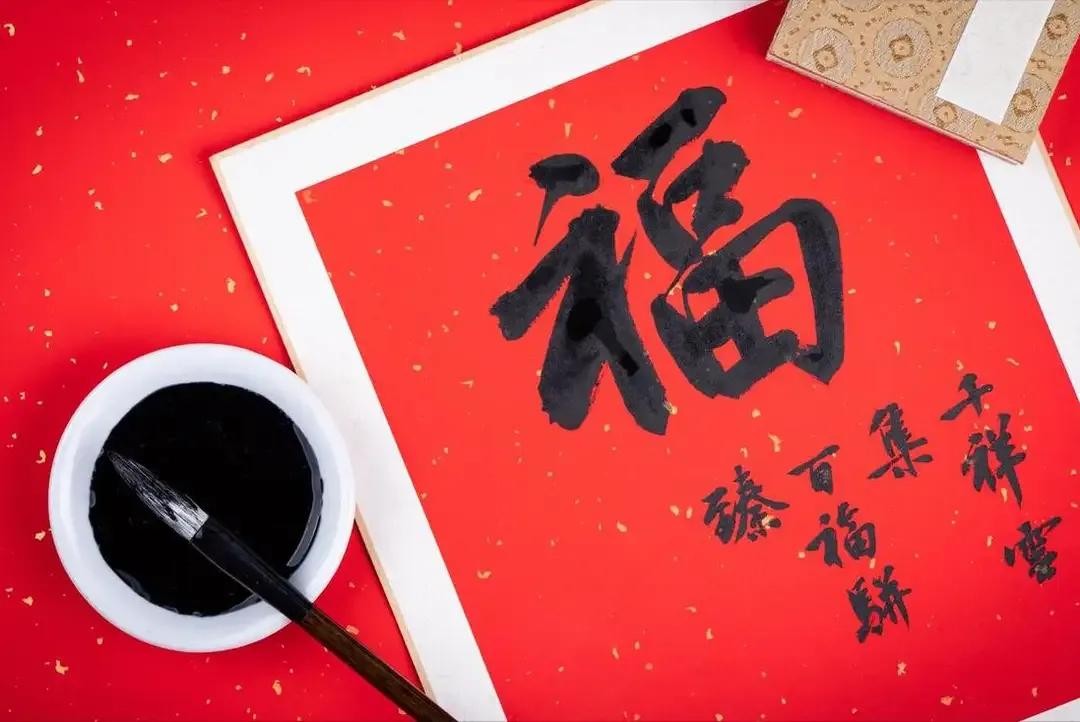 福
千祥雲
集
百福駢
臻